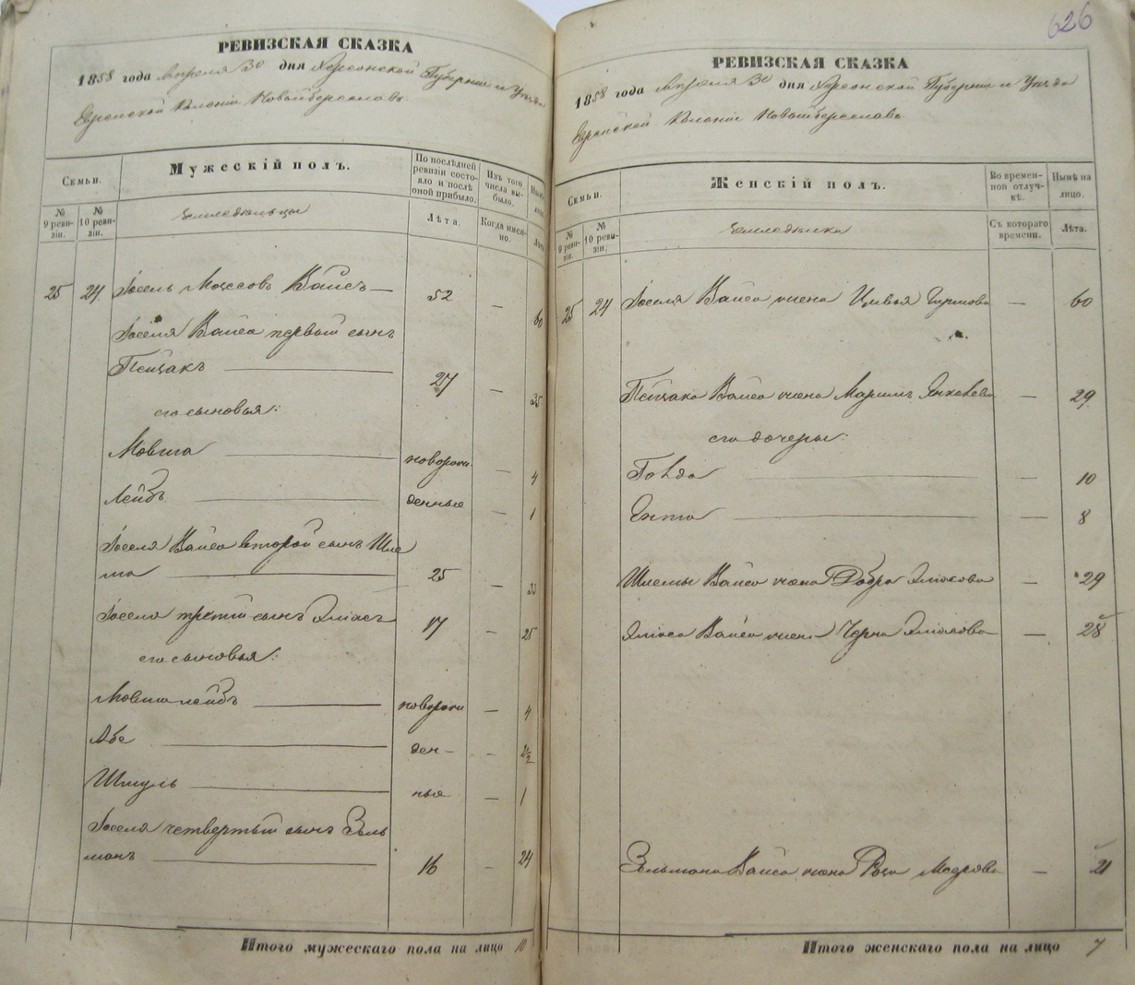 РЕВИЗСКАЯ СКАЗКА
1858 года Апреля 30 дня Херсонской Губернии и Уезда
Еврейской Колонии Новыйбереславъ
Семьи.
Мужескій полъ.
По последней ревизіи состояло и после оной прибыло.
Изъ того числа выбыло.
№ 9 ревизіи.
№ 10 ревизіи.
Земледельцы
Лѣта.
Когда именно.
Лѣта
25 24. Іосель Мошковъ Вайсъ — 52 — 60
Іоселя Вайса первый сынъ
Пейсакъ — 27 — 35
его сыновья:
Мовша — новорож — 4
Лейбъ — денные — 1
Іоселя Вайса второй сынъ Шле
ма — 25 — 33
Іоселя третій сынъ Эліасъ 17 — 25
его сыновья:
Мовшалейбъ — новорож — 4
Абе — ден — 2½
Шмуль — ные — 1
Іоселя четвертый сынъ Зель
манъ — 16 — 24
Итого мужескаго пола на лицо 10
626
РЕВИЗСКАЯ СКАЗКА
1858 года Апреля 30 дня Херсонской Губерніи и Уезда
Еврейской Колоніи Новыйбереславъ
Семьи.
Женскій полъ.
Во временной отлучкѣ.
Нынѣ на лицо.
№ 9 ревизіи.
№ 10 ревизіи.
Съ котораго времени.
Лѣта.
25 24 Іоселя Вайса жена Цивья — 60
Пейсака Вайса жена Марьямъ Янкелева — 29
его дочеры:
Голда — 10
Ента — 8
Шлемы Вайса жена Добра — 29
Эліаса Вайса жена Черна — 28
Зельмана Вайса жена — 21
Итого женскаго пола на лицо 7